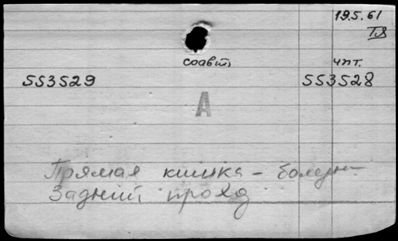 19.5.61
соавт. чпт.
553529 553528
А
Прямая кишка - болезн.
Задний проход